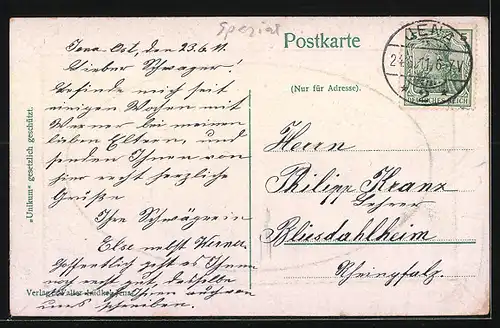 Spezial
Jena-Ost, den 23.6.11.
Lieber Schwager!
Befinde mich seit
einigen Wochen mit
Werner bei meinen
lieben Eltern, und
senden Ihnen von
hier recht herzliche
Grüße
Ihre Schwägerin
Else nebst Werner
Hoffentlich geht es Ihnen
noch recht gut, dasselbe
auch von
uns schreiben.
„Unikum“ gesetzlich geschützt.
Verlag
Postkarte
(Nur für Adresse).
JENA
6-7V
DEUTSCHES REICH
Herrn
Philipp Kranz
Lehrer
Bliesdahlheim
Rheinpfalz.